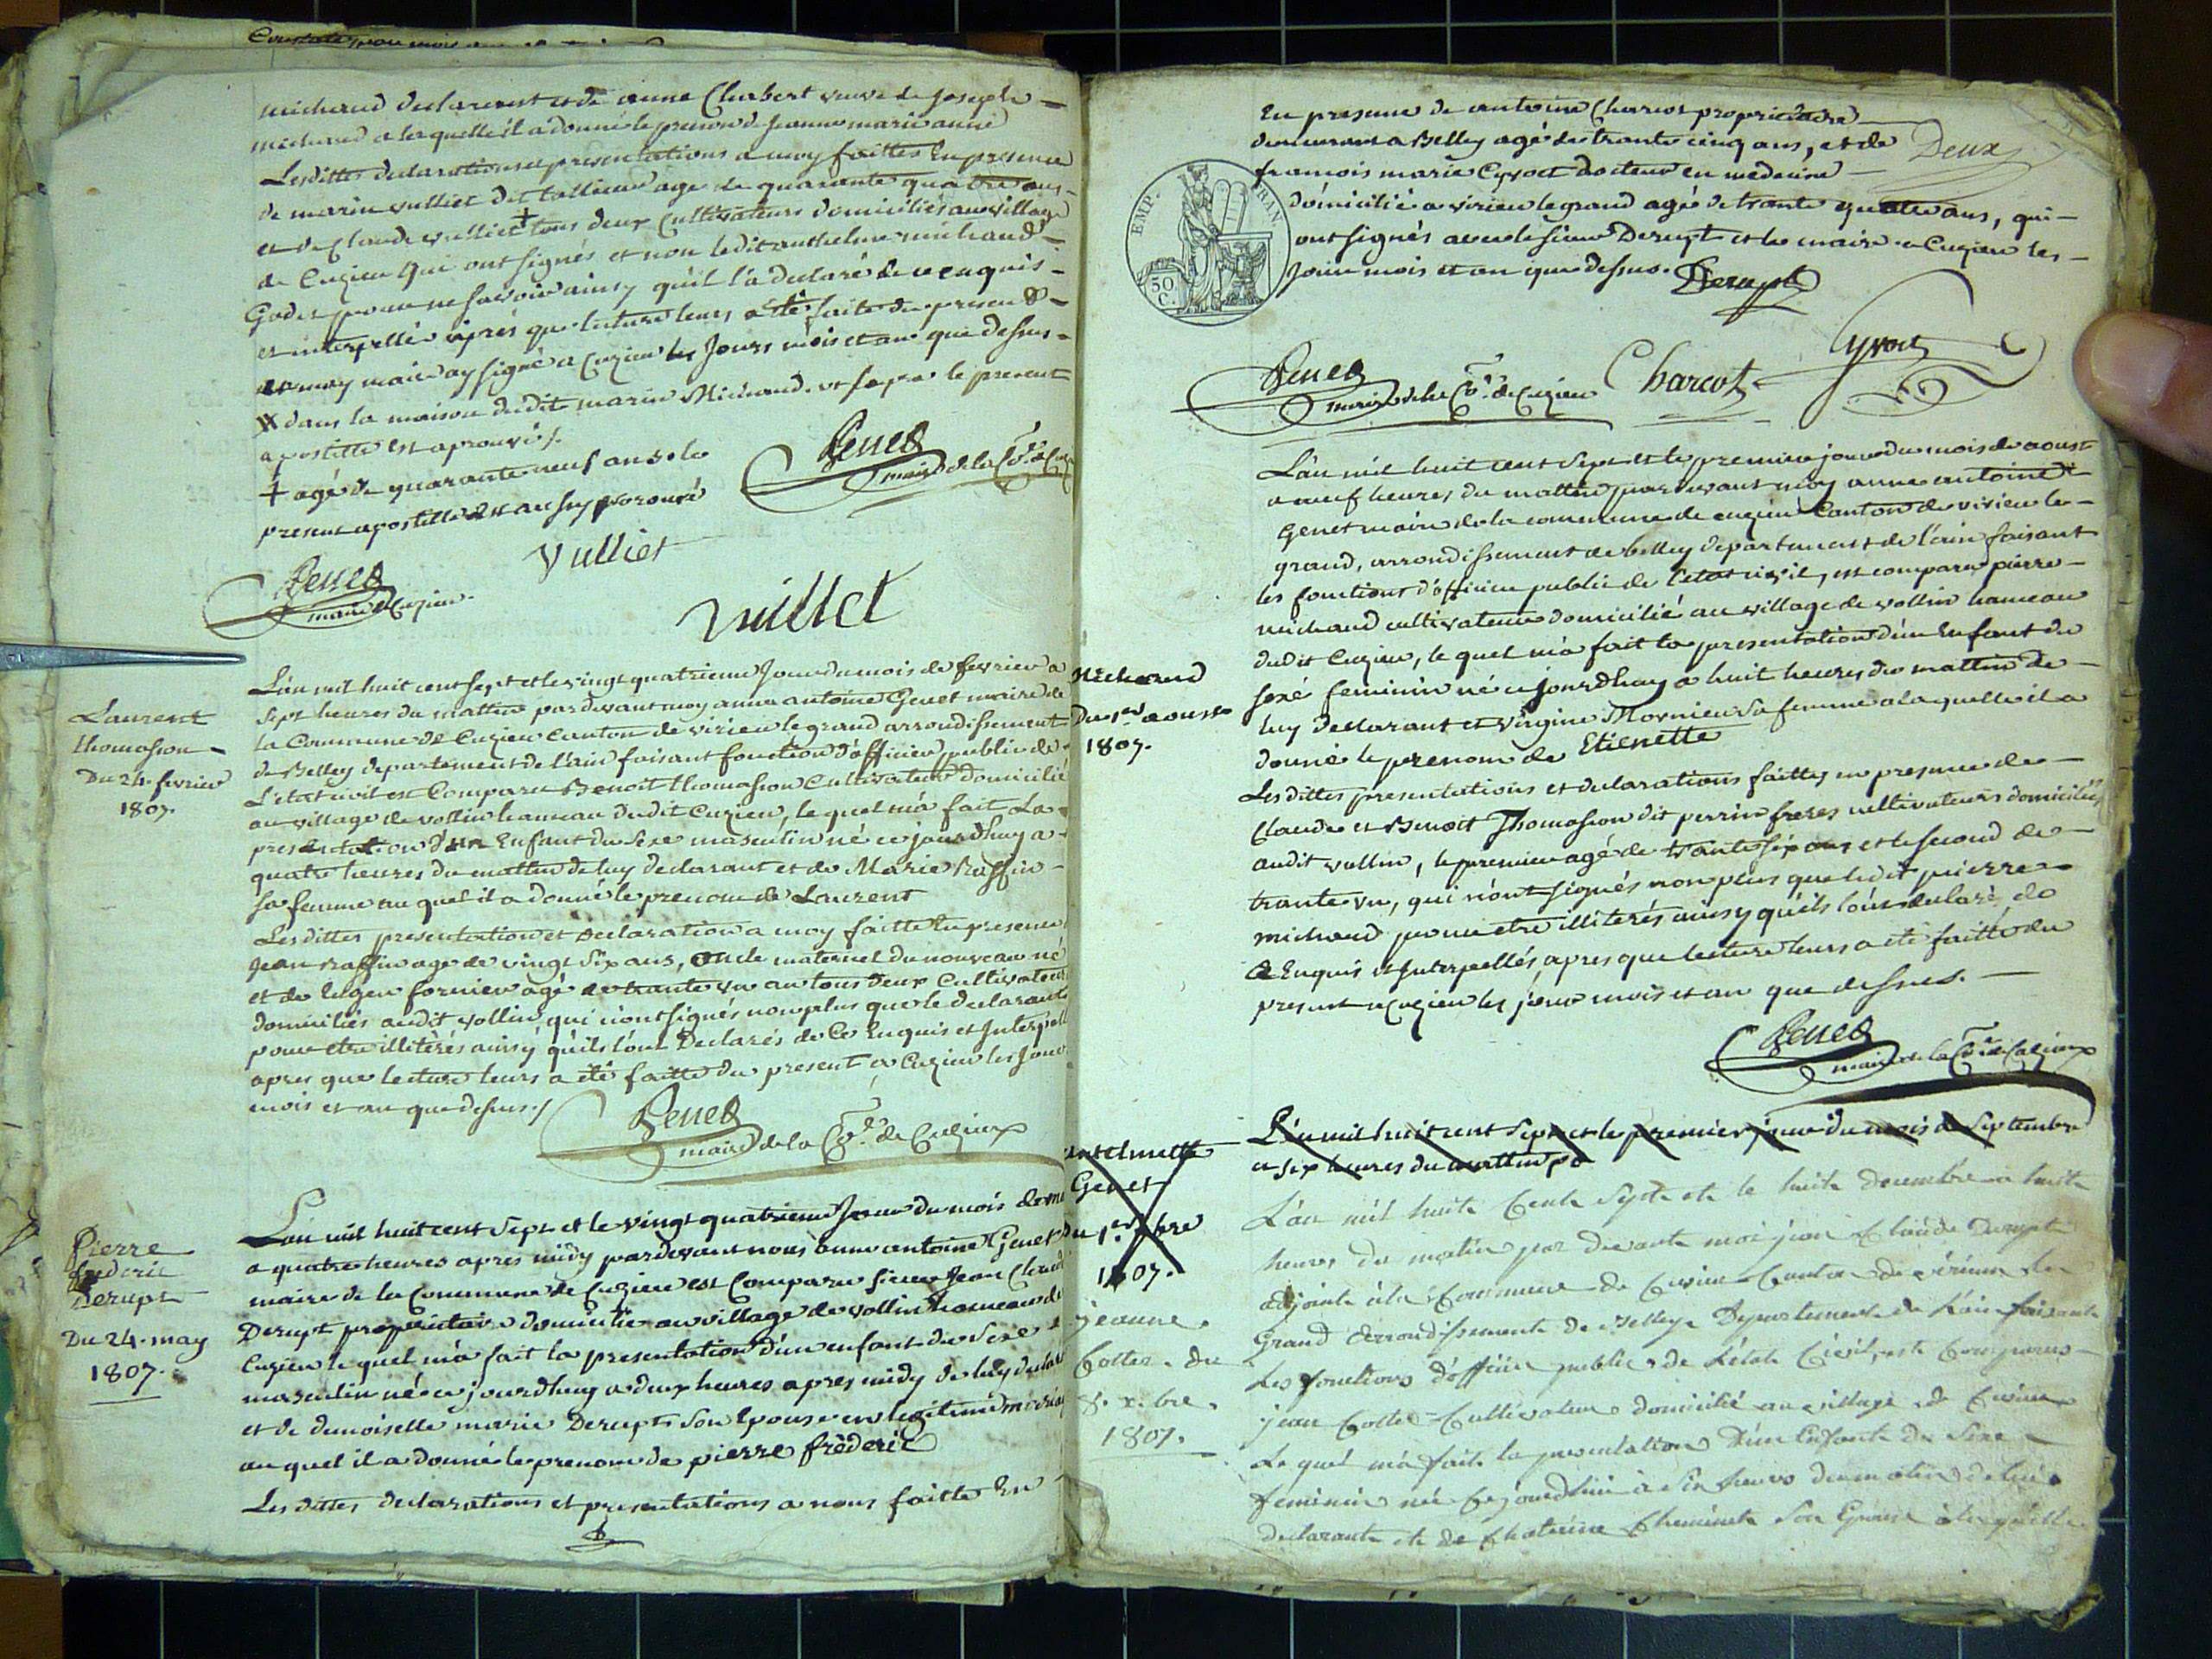 michaud declarant et de anne Charbert veuve de Joseph
michaud a laquelle il a donné le prenom de Jeanne marie anne
Lesdittes declarations et presentations a moy faittes En presence
de marin vulliet dit tallieur agé de quarante quatre ans
et de Claude vulliet + tous deux Cultivateurs domiciliés au village
de Cuzieu qui ont signés et non ledit anthelme michaud
pour ne savoir ainsy qu'il l'a declaré de ce enquis
et interpellé après que lecture leurs a été faite du present
et moy maire ay signé a Cuzieu les Jours mois et an que dessus
X dans la maison dudit marin Michaud. le present
apostille est aprouvé /.
+ agé de quarante neuf ans. le
present apostille est aussy aprouvé
Genet
maire de la Cne de
Vulliet
Genet
maire de Cuzieu.
vuillet
Laurent
thomasson
Du 24. fevrier
1807.
L'an mil huit cent sept et le vingt quatrieme Jour du mois de fevrier a
sept heures du mattin pardevant moy anne antoine Genet maire de
la Commune de Cuzieu Canton de virieu le grand arrondissement
de Belley departement de l'ain faisant fonction d'officier public de
L'etat civil est Comparu Benoit thomasson Cultivateur domicilié
au village de vollin hameau dudit Cuzieu, le quel m'a fait La
presentation d'un Enfant du Sexe masculin né ce jourdhuy a
quatre heures du mattin de luy declarant et de Marie Raffin
sa femme au quel il a donné le prenom de Laurent
Lesdittes presentation et Declaration a moy faitte En presence
Jean Raffin agé de vingt Six ans, oncle maternel du nouveau né
et de Eugen fornier agé de trante un an tous Deux Cultivateurs
domiciliés audit vollin qui n'ont signés non plus que le declarant
pour etre illitérés ainsy qu'ils l'ont Declarés de Ce Enquis et Interpell
apres que lecture leurs a été faitte du present a Cuzieu les Jour
mois et an que dessus /
Genet
maire de la Cne de Cuzieux
Pierre
frederic
Derupt
Du 24. may
1807.
L'an mil huit cent Sept et le vingt quatrieme Jour du mois de
a quatre heures apres midy pardevant nous anne antoine Genet
maire de la Commune de Cuzieu est Comparu sieur Jean Claud
Derupt propriétaire domicilié au village de vollin hameau de
Cuzieu le quel m'a fait la presentation d'un enfant du Sexe
masculin né ce jourdhuy a deux heures apres midy de luy
et de demoiselle marie Derupt Son Epouse en legitime
au quel il a donné le prenom de pierre fréderic
Les dittes declarations et presentations a nous faitte En
En presence de antoine Charcot propriétaire
demeurant a Belley agé de trante cinq ans, et de
Deux
francois marie Cyvoct docteur en médecine
domicilié a virieu le grand agé de trante quatre ans, qui
ont signés avec le sieur Derupt et le maire a Cuzieu les
Jour mois et an que dessus. Derupt
EMP. FRAN.
50
C.
Genet
maire de la Cne de Cuzieu
Charcot
Cyvoct
Michaud
Du 1er aoust
1807.
L'an mil huit cent Sept et le premier jour du mois de aoust
a neuf heures du mattin pardevant moy anne antoine
Genet maire de la commune de cuzieu Canton de virieu le
grand, arrondissement de belley departement de l'ain faisant
les fonctions d'officier public de l'etat civil, est comparu pierre
michaud cultivateur domicilié au village de vollin hameau
dudit Cuzieu, le quel m'a fait la presentation d'un Enfant du
sexé feminin né ce jourdhuy a huit heures du mattin de
luy declarant et virgine Mornieu sa femme a laquelle il a
donné le prenom de Etienette
Lesdittes presentations et declarations faittes en presence de
Claude et Benoit Thomasson dit perrin freres cultivateurs domiciliés
audit vollin, le premier agé de trante six ans et le second de
trante un, qui n'ont signés non plus que ledit pierre
michaud pour etre illiterés ainsy qu'ils l'ont declaré, de
ce Enquis et Interpellés, apres que lecture leurs a été faitte du
present a Cuzieu les jour mois et an que dessus.
Genet
maire de la Cne de Cuzieux
antelmette
Genet
Du 1er 7bre
1807.
L'an mil huit cent Sept et le premier jour du mois de Septembre
a six heures du mattin pa
jeanne
Cottet. du
8. x. bre.
1807.
L'an mil huite Cente Septe ete le huite decembre a huite
heures du matin par devante moi jean Claude Derupt
adjointe à la Commune de Cusieu Canton de virieu le
Grand Arrondissemente de Belley Departemente de L'ain faisante
Les fonctions d'officier public de L'etate Civil, este Comparus
jean Cottet Cultivateur domicilié au village de Cusieux
Le quel m'a faite la presentation D'un Enfante du Sexe
feminin née Cejourdhui à Six heures du matin de lui
declarante ete de Chaterine Cheminete Son Epouse à laquelle